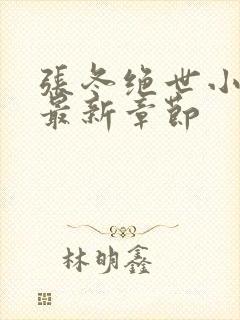 張冬绝世小
最新章節
林明鑫